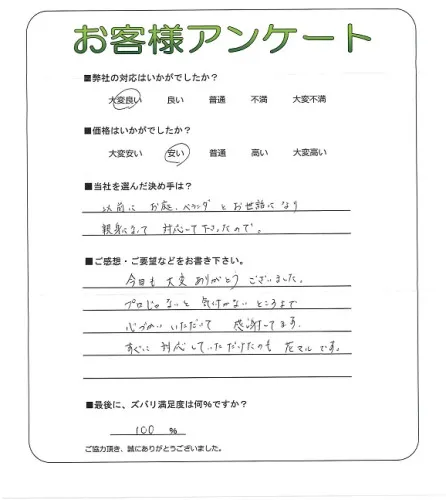 お客様アンケート
■弊社の対応はいかがでしたか？
大変良い 良い 普通 不満 大変不満
■価格はいかがでしたか？
大変安い 安い 普通 高い 大変高い
■当社を選んだ決め手は？
以前に お庭、ベランダ とお世話になり
親身になって 対応して下さったので。
■ご感想・ご要望などをお書き下さい。
今日も 大変 ありがとう ございました。
プロじゃないと 気付かない ところまで
心づかい いただいて 感謝してます。
すぐに 対応していただけたのも 花マル です。
■最後に、ズバリ満足度は何％ですか？
100 %
ご協力頂き、誠にありがとうございました。